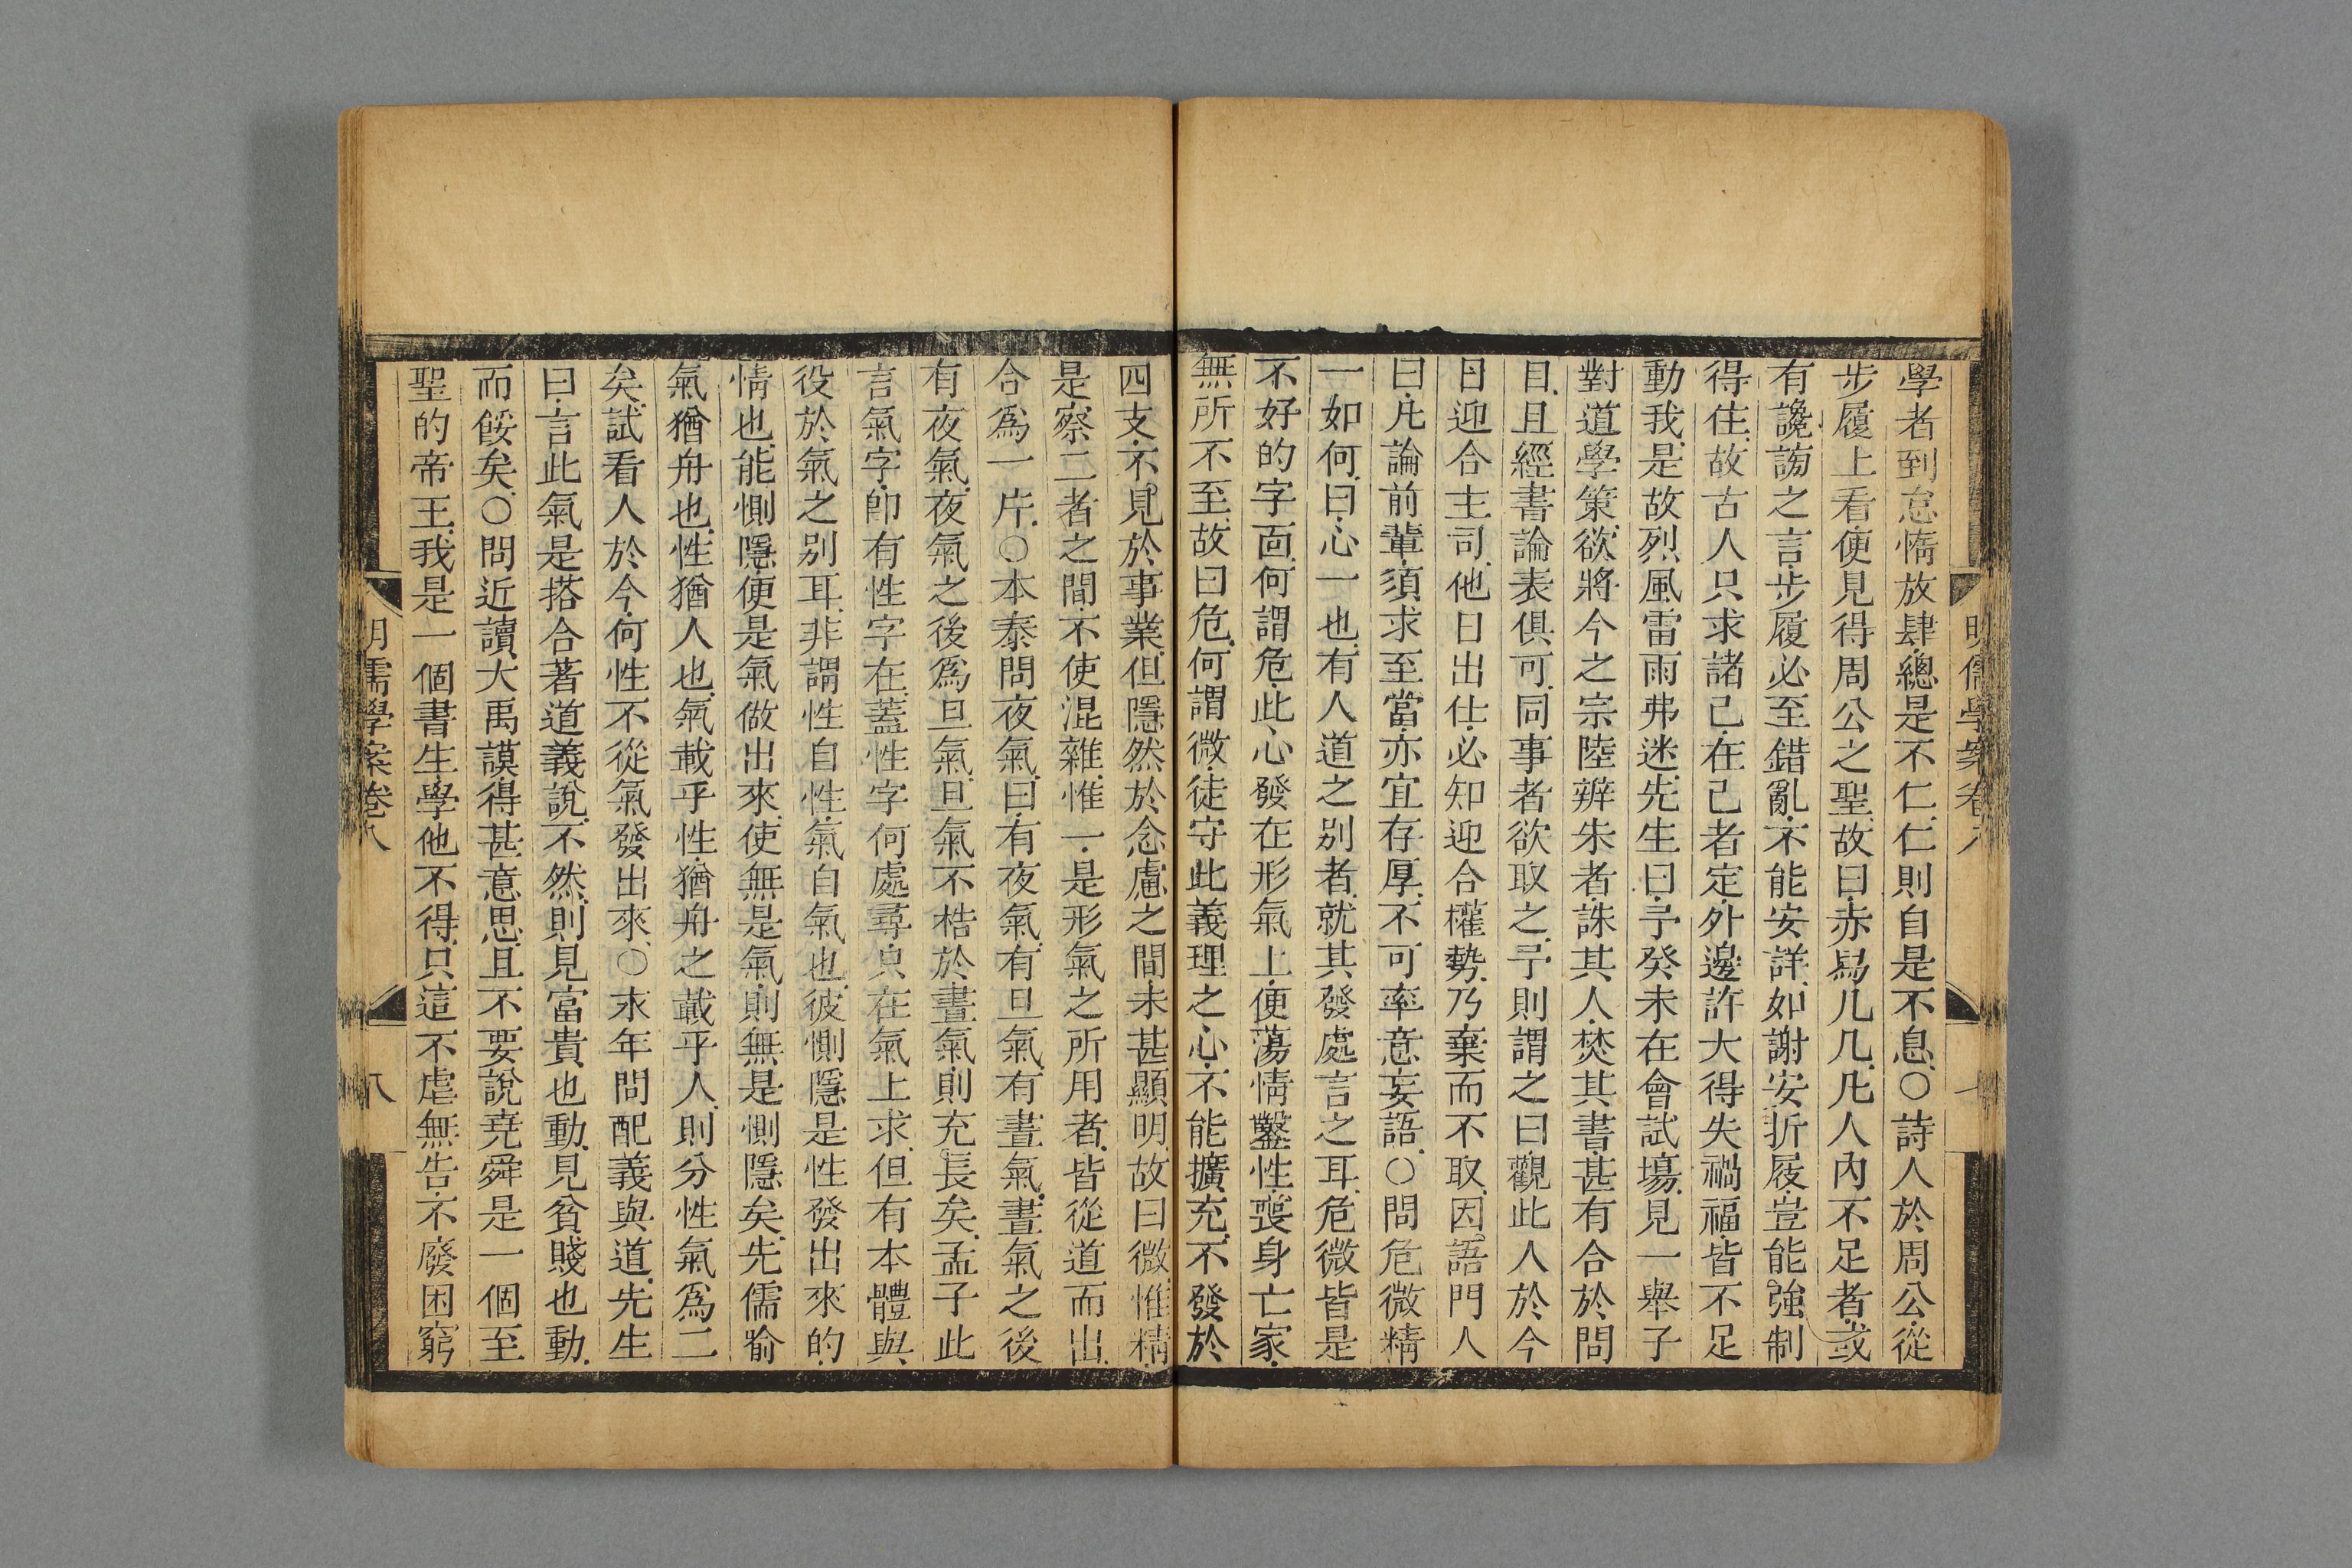 明儒學案卷八
學者到怠惰放肆總是不仁仁則自是不息○詩人於周公從
步履上看使見得周公之聖故曰赤舄几几凡人內不足者或
有讒謗之言步履必至錯亂不能安詳如謝安折屐豈能強制
得住故古人只求諸己在己者定外邊許大得失禍福皆不足
動我是故烈風雷雨弗迷先生曰予癸未在會試場見一舉子
對道學策欲將今之宗陸辨朱者誅其人焚其書甚有合於問
目且經書論表俱可同事者欲取之予則謂之曰觀此人於今
日迎合主司他日出仕必知迎合權勢乃棄而不取因語門人
曰凡論前輩須求至當亦宜存厚不可率意妄語○問危微精
一如何曰心一也有人道之別者就其發處言之耳危微皆是
不好的字面何謂危此心發在形氣上便蕩情鑿性喪身亡家
無所不至故曰危何謂微徒守此義理之心不能擴充不發於
四支不見於事業但隱然於念慮之間未甚顯明故曰微惟精
是察二者之間不使混雜惟一是形氣之所用者皆從道而出
合為一片○本泰問夜氣曰有夜氣有旦氣有晝氣晝氣之後
有夜氣夜氣之後為旦氣旦氣不梏於晝氣則充長矣孟子此
言氣字卽有性字在蓋性字何處尋只在氣上求但有本體與
役於氣之別耳非謂性自性氣自氣也彼惻隱是性發出來的
情也能惻隱便是氣做出來使無是氣則無是惻隱矣先儒喻
氣猶舟也性猶人也氣載乎性猶舟之載乎人則分性氣為二
矣試看人於今何性不從氣發出來○永年問配義與道先生
曰言此氣是搭合著道義說不然則見富貴也動見貧賤也動
而餒矣○問近讀大禹謨得甚意思且不要說堯舜是一個至
聖的帝王我是一個書生學他不得只這不虐無告不廢困窮
明儒學案卷八
八